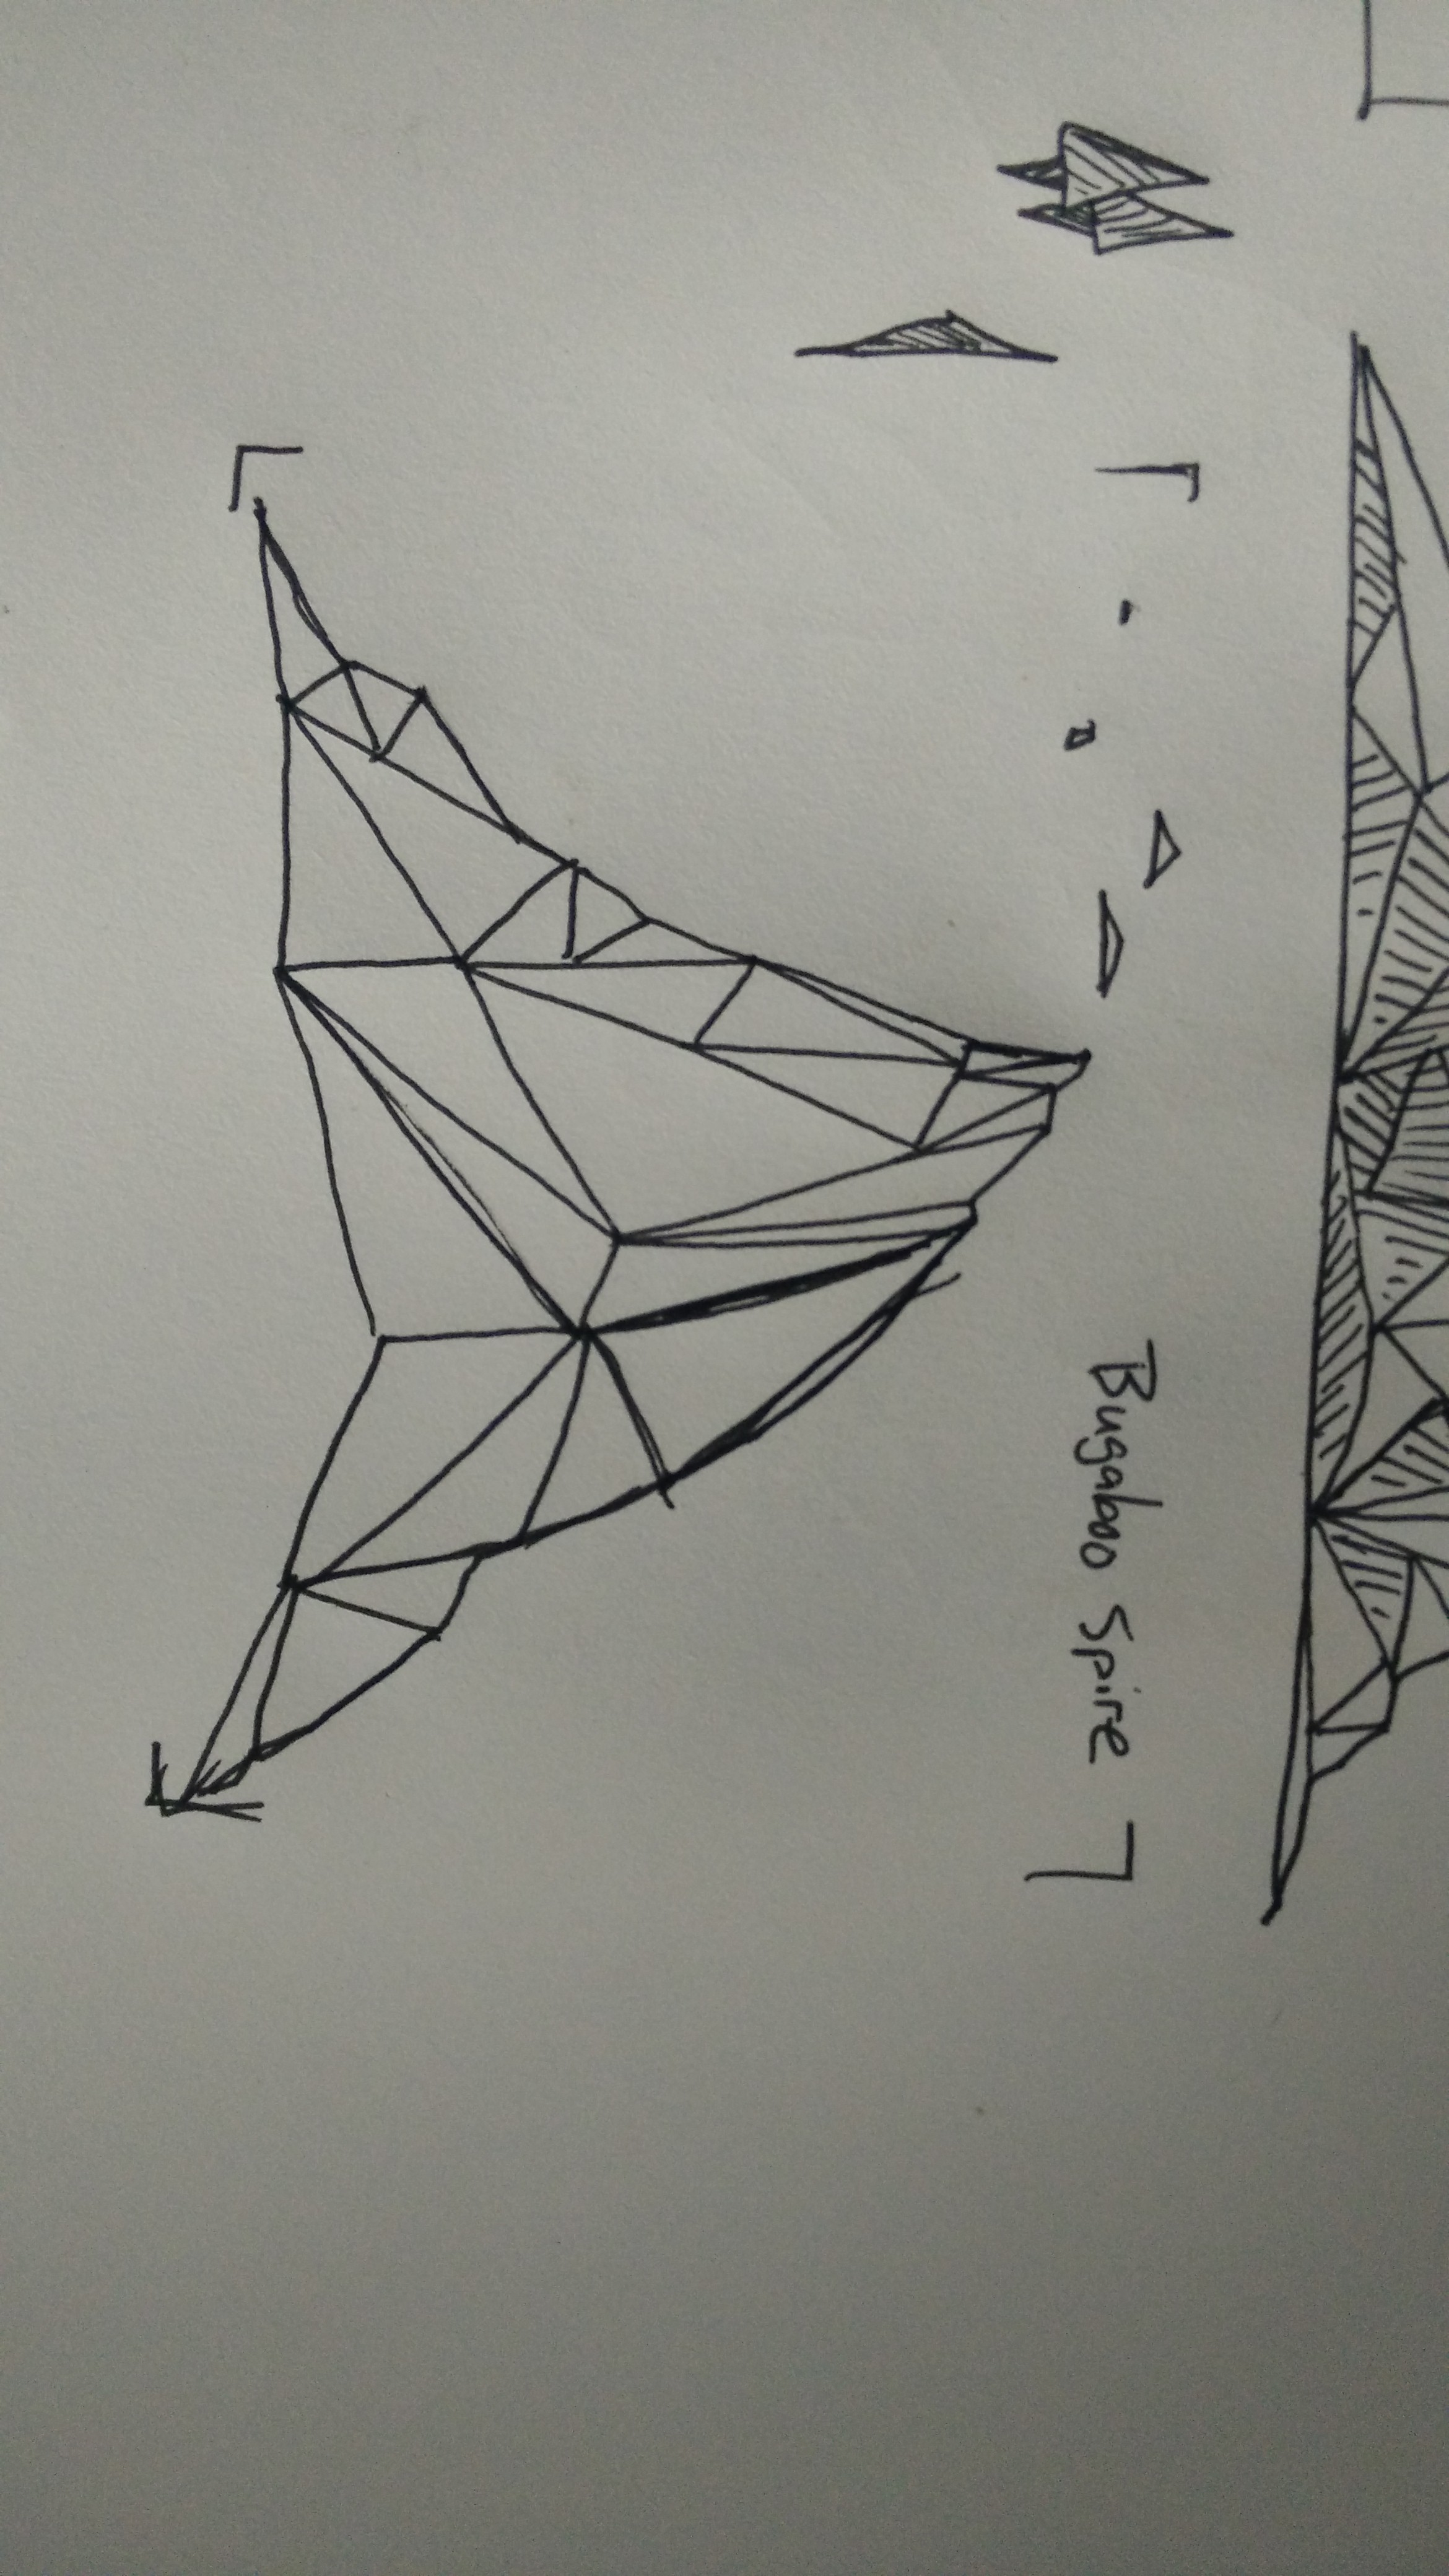 Bugaboo Spire